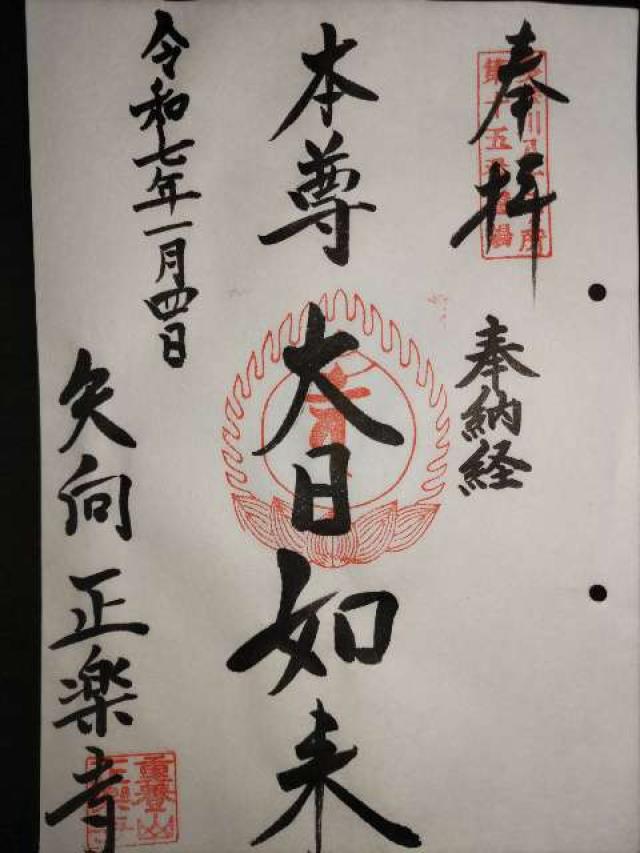 奉拝
奉納経
本尊
大日如来
令和七年一月四日
矢向
正楽寺